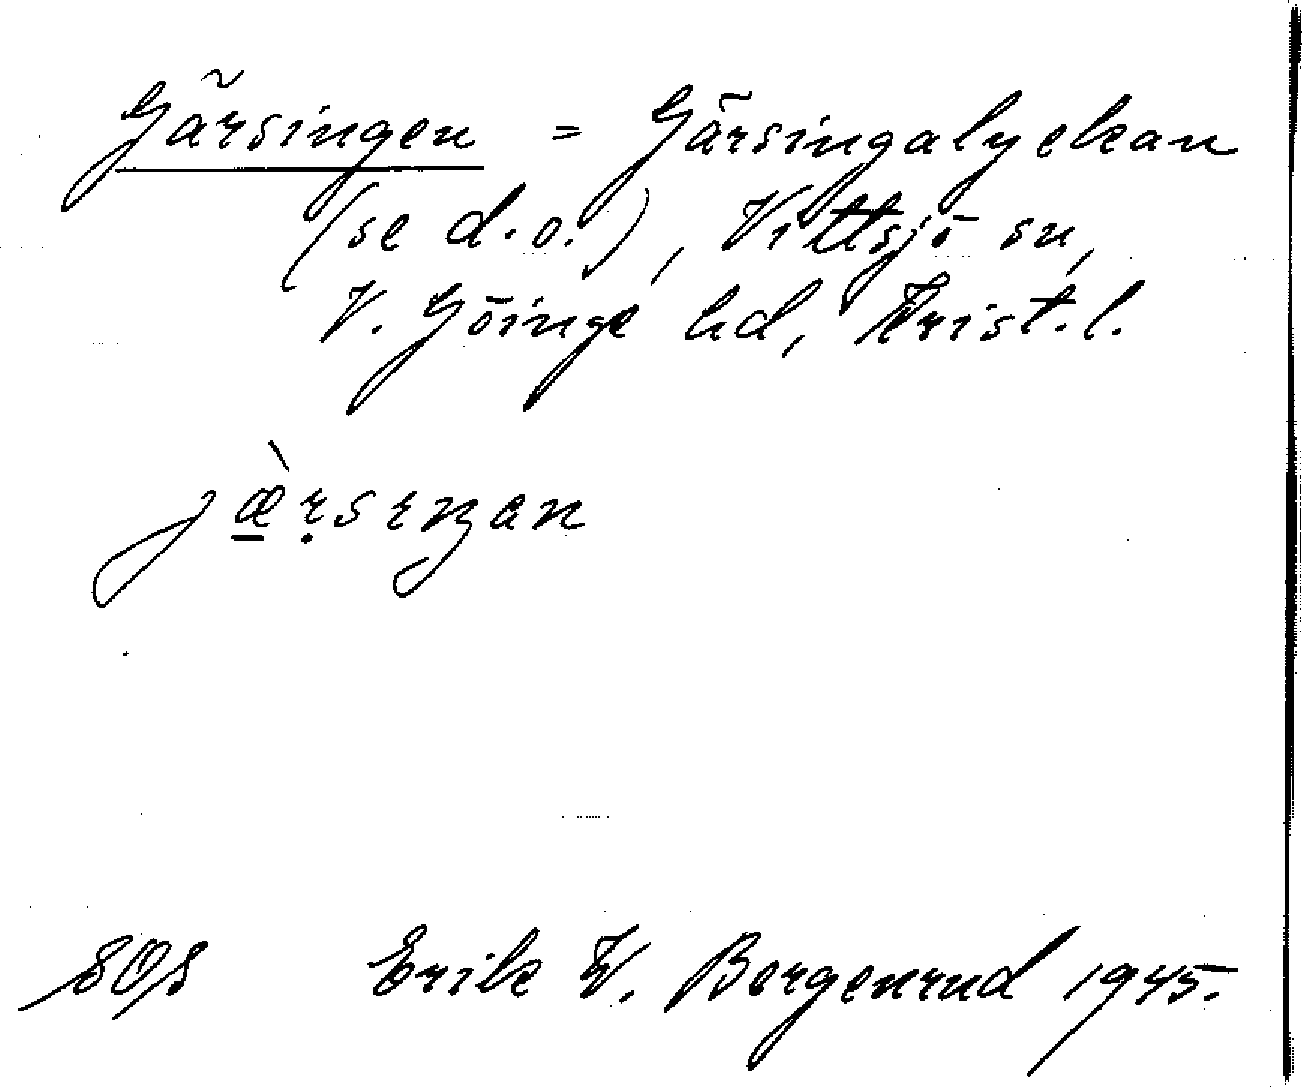 Gärsingen = Gärsingalyckan
(se d.o.), Vittsjö sn,
V. Göinge hd, Krist. l.
jæ̠̀ṛsɪŋan
Erik W. Borgenrud 1945.